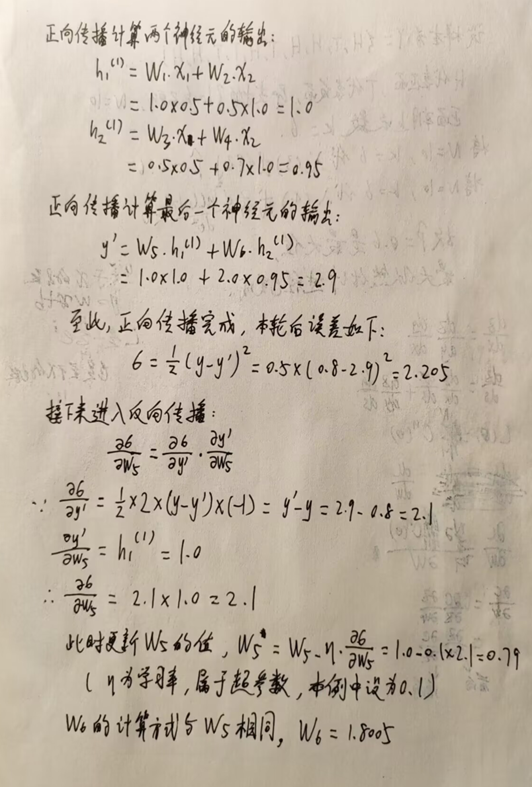 正向传播计算两个神经元的输出:
h₁⁽¹⁾ = W₁·x₁+W₂·x₂
= 1.0×0.5+0.5×1.0=1.0
h₂⁽¹⁾ = W₃·x₁+W₄·x₂
= 0.5×0.5+0.7×1.0=0.95
正向传播计算最后一个神经元的输出:
y' = W₅·h₁⁽¹⁾+W₆·h₂⁽¹⁾
= 1.0×1.0 + 2.0×0.95=2.9
至此,正向传播完成,本轮后误差如下:
6 = 1/2 (y-y')² = 0.5×(0.8-2.9)² = 2.205
接下来进入反向传播:
∂6/∂W₅ = ∂6/∂y' · ∂y'/∂W₅
∵ ∂6/∂y' = 1/2×2×(y-y')×(-1) = y'-y = 2.9-0.8=2.1
∂y'/∂W₅ = h₁⁽¹⁾ = 1.0
∴ ∂6/∂W₅ = 2.1×1.0 = 2.1
此时更新W₅的值, W₅ = W₅-η·∂6/∂W₅ = 1.0-0.1×2.1=0.79
(η为学习率,属于超参数,本例中设为0.1)
W₆的计算方式与W₅相同, W₆ = 1.8005